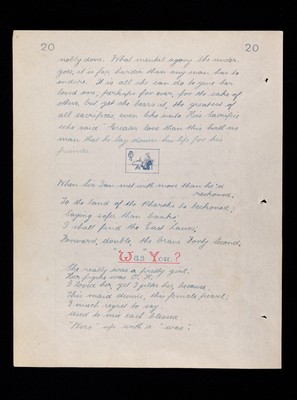 20 20
nobly done. What mental agony she under-
goes, it is far harder than any man has to
endure. It is all she can do to give her
loved one, perhaps for ever, for the sake of
others but yet she bears it, the greatest of
all sacrifices, even like unto His Sacrifice
who said "Greater love than this hath no
man that he lay down his life for his
friends.
When Sir Ian met with more than he'd
reckoned,
To the land of the Pharaohs he beckoned;
Saying safer than banks
I shall find the East Lancs,
Forward, double, the brave Forty Second.
"Was You?"
She really was a pretty girl.
Her figure was O.K.
I loved her, yet I jilted her, because
This maid divine, this female pearl,
I much regret to say
Used to mix each blessed
"Were" up with a "was".